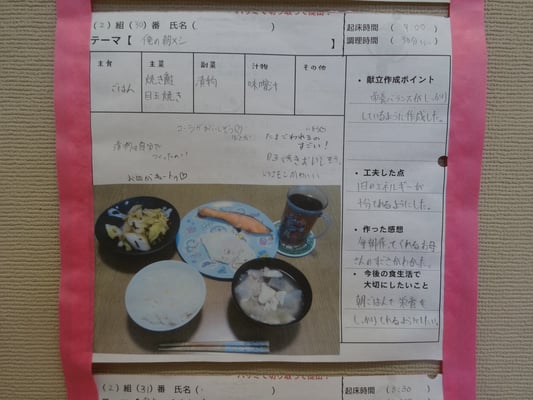 (2)組(30)番 氏名( )
テーマ【 俺の朝メシ 】
起床時間 ( 9:00 )
調理時間 ( 30分 )
主食 主菜 副菜 汁物 その他
ごはん 焼き鮭 漬物 味噌汁
目玉焼き
・献立作成ポイント
栄養バランスがしっかり
しているように作成した。
・工夫した点
1日のエネルギーが
十分とれるようにした。
・作った感想
毎朝作ってくれるお母
さんのすごさがわかった。
・今後の食生活で
大切にしたいこと
朝ごはんで栄養を
しっかりとれるようにしたい。
コーラがおいしそう♡
たまごわれるの
すごい!
漬物も自分で
つくったの…!
目玉焼きおいしそう。
お皿がキュートっ♡
(2)組(31)番 氏名(
起床時間 ( 8:30 )